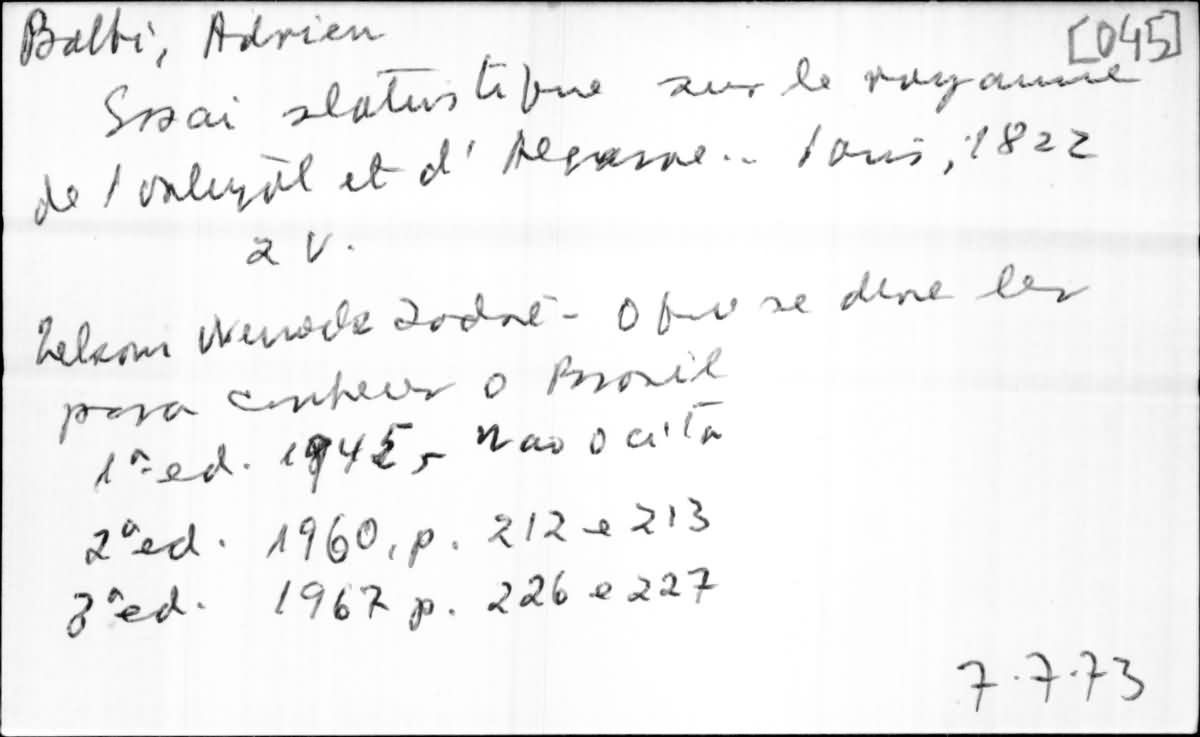 Balbi, Adrien [045]
Essai statistique sur le royaume
de Portugal et d'Algarve... Paris, 1822
2 v.
Nelson Werneck Sodré - O que se deve ler
para conhecer o Brasil
1ª ed. 1945, não o cita
2ª ed. 1960, p. 212 e 213
3ª ed. 1967 p. 226 e 227
7.7.73